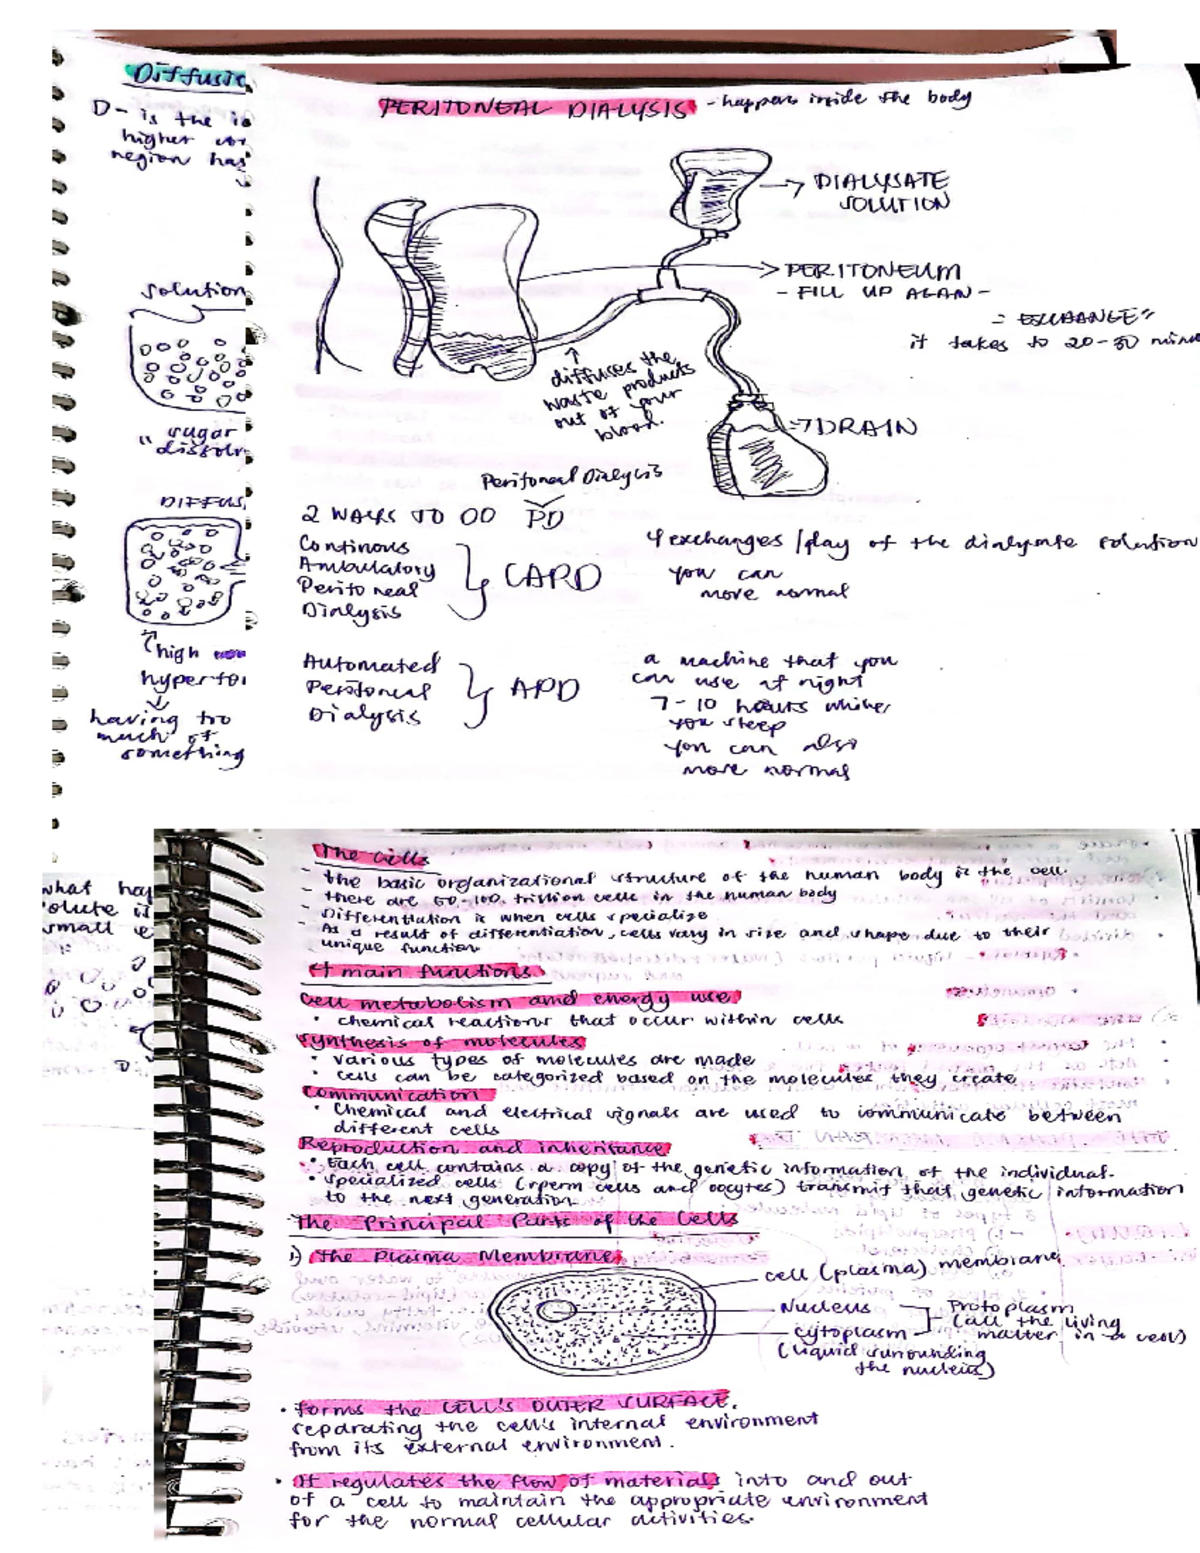 Diffusic
D - is the
higher
region has
solution
" sugar
dissolv
DIFFUS
high
hyperto
having too
much of
something
PERITONEAL DIALYSIS - happens inside the body
→ DIALYSATE
SOLUTION
→ PERITONEUM
- FILL UP AGAN -
it takes to 20-30 minu
diffuses the
waste products
out of your
blood.
→ DRAIN
Peritoneal Dialysis
2 WAYS TO DO PD
Continous
Ambulatory
Peritoneal
Dialysis
CAPD
4 exchanges / day of the dialysate solution
you can
move normal
Automated
Peritoneal
Dialysis
APD
a machine that you
can use at night
7-10 hours while
you sleep
you can also
move normal
what hap
olute is
small
The Cells
- the basic organizational structure of the human body is the cell
- there are 60-100 trillion cells in the human body
- Differentiation is when cells specialize
- As a result of differentiation, cells vary in size and shape due to their
unique function
4 main functions
Cell metabolism and energy use
• chemical reactions that occur within cells
Synthesis of molecules
• various types of molecules are made
• cells can be categorized based on the molecules they create
Communication
• Chemical and electrical signals are used to communicate between
different cells
Reproduction and inheritance
• Each cell contains a copy of the genetic information of the individual.
• specialized cells (sperm cells and oocytes) transmit that genetic information
to the next generation
The Principal Parts of the Cells
1) The Plasma Membrane
cell (plasma) membrane
Nucleus
cytoplasm
(liquid surrounding
the nucleus)
Protoplasm
(all the living
matter in a cell)
• forms the CELL'S OUTER SURFACE,
separating the cell's internal environment
from its external environment.
• It regulates the flow of materials into and out
of a cell to maintain the appropriate environment
for the normal cellular activities.